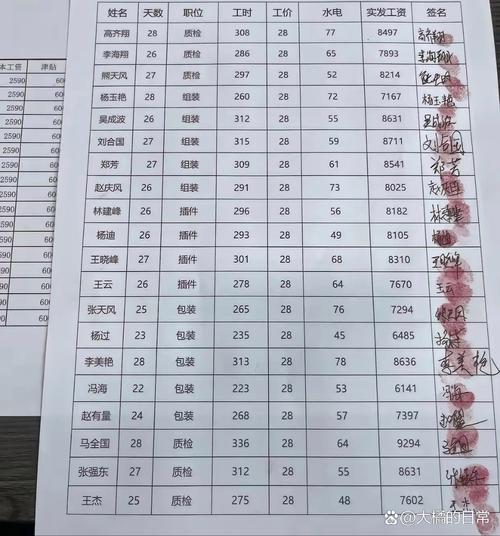 姓名 天数 职位 工时 工价 水电 实发工资 签名
高齐翔 28 质检 308 28 77 8497
李海翔 26 质检 286 28 65 7893
熊天风 27 质检 297 28 52 8214
杨玉艳 28 组装 260 28 72 7167 杨玉艳
吴成波 26 组装 312 28 55 8631
刘合国 27 组装 315 28 59 8711 刘合国
郑芳 27 组装 309 28 61 8541 郑芳
赵庆风 26 组装 291 28 73 8025
林建峰 26 插件 296 28 56 8182
杨迪 26 插件 293 28 49 8105
王晓峰 27 插件 301 28 68 8310
王云 26 插件 278 28 64 7670 王云
张天风 25 包装 265 28 76 7294
杨过 23 包装 235 28 45 6485
李美艳 28 包装 313 28 78 8636 李美艳
冯海 22 包装 223 28 53 6141 冯海
赵有量 24 包装 268 28 57 7397
马全国 28 质检 336 28 64 9294
张强东 27 质检 312 28 55 8631
王杰 25 质检 275 28 48 7602
本工资 津贴
2590 60
2590 60
2590 60
2590 60
2590 60
2590 60
2590 60
2590 60
2590 60
2590 60
2590 60
2590 60
2590 60
@大橘的日常